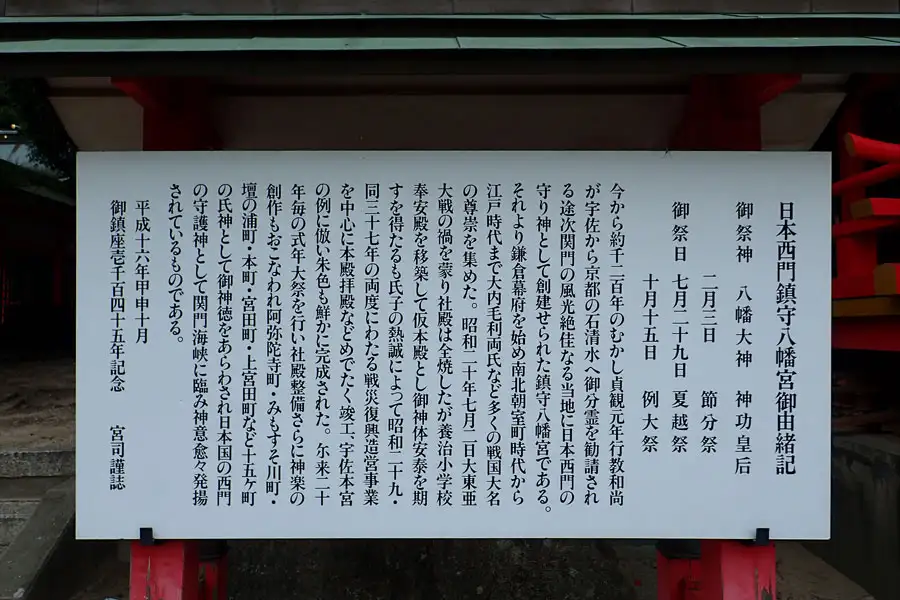 日本西門鎮守八幡宮御由緒記
御祭神　八幡大神　神功皇后
二月三日　節分祭
御祭日　七月二十九日　夏越祭
十月十五日　例大祭
今から約千二百年のむかし貞観元年行教和尚
が宇佐から京都の石清水へ御分霊を勧請され
る途次関門の風光絶佳なる当地に日本西門の
守り神として創建せられた鎮守八幡宮である。
それより鎌倉幕府を始め南北朝室町時代から
江戸時代まで大内毛利両氏など多くの戦国大名
の尊崇を集めた。昭和二十年七月二日大東亜
大戦の禍を蒙り社殿は全焼したが養治小学校
奉安殿を移築して仮本殿とし御神体安泰を期
すを得たるも氏子の熱誠によって昭和二十九・
同三十七年の両度にわたる戦災復興造営事業
を中心に本殿拝殿などめでたく竣工、宇佐本宮
の例に倣い朱色も鮮かに完成された。尓来二十
年毎の式年大祭を行い社殿整備さらに神楽の
創作もおこなわれ阿弥陀寺町・みもすそ川町・
壇の浦町・本町・宮田町・上宮田町など十五ヶ町
の氏神として御神徳をあらわされ日本国の西門
の守護神として関門海峡に臨み神意愈々発揚
されているものである。
平成十六年甲申十月
御鎮座壱千百四十五年記念　宮司謹誌